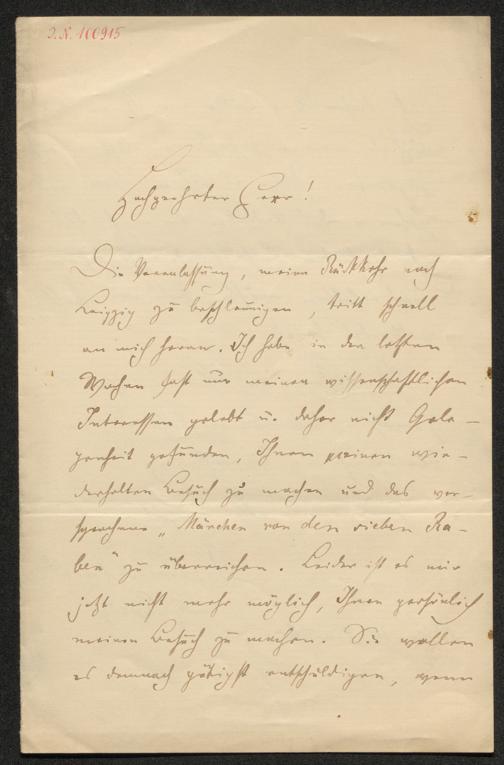 J.N. 100915
Hochgeehrter Herr!
Die Veranlassung, meine Rückkehr nach
Leipzig zu beschleunigen, tritt schnell
an mich heran. Ich habe in den letzten
Wochen fast nur meinen wissenschaftlichen
Interessen gelebt u. daher nicht Gele-
genheit gefunden, Ihnen meinen wie-
derholten Besuch zu machen und das ver-
sprochene „Märchen von den sieben Ra-
ben" zu überreichen. Leider ist es mir
jetzt nicht mehr möglich, Ihnen persönlich
meinen Besuch zu machen. Sie wollen
es demnach gütigst entschuldigen, wenn